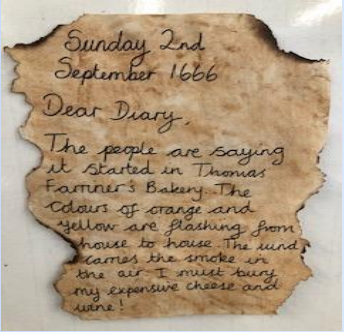 Sunday 2nd
September 1666
Dear Diary,
The people are saying
it started in Thomas
Farriner's Bakery. The
Colours of orange and
yellow are flashing from
house to house. The wind
carries the smoke in
the air. I must bury
my expensive cheese and
wine!